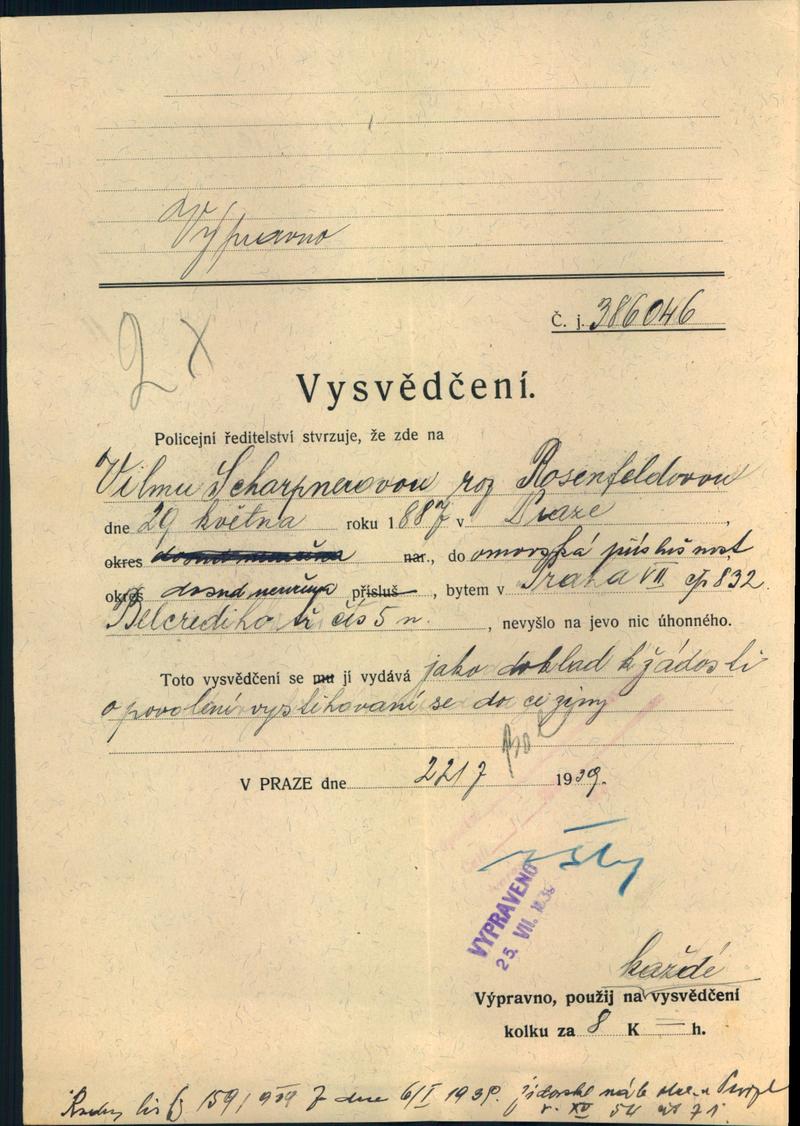 Výpravno
2 x
Č. j. 386046
Vysvědčení.
Policejní ředitelství stvrzuje, že zde na
Vilmu Scharpnerovou roz Rosenfeldovou
dne 29 května roku 1887 v Praze,
okres nar., do omovská příslušnost
okres dosud neurčena přísluš, bytem v Praha VII čp 832
Belcrediho tř čís 5 n., nevyšlo na jevo nic úhonného.
Toto vysvědčení se mu jí vydává jako doklad k žádosti
o povolení vystěhování se do ciziny
V PRAZE dne 22/7 1939.
VYPRAVENO
25. VII.
každé
Výpravno, použij na vysvědčení
kolku za 8 K = h.
lis 159/ dne 6/I 1939. židovské náb